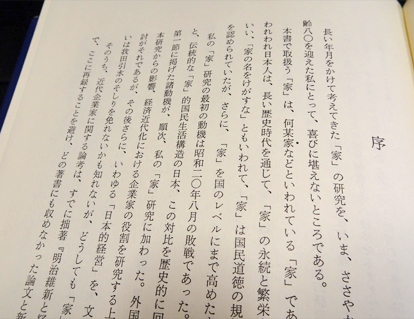 序
長い年月をかけて考えてきた「家」の研究を、いま、ささや
齢八〇を迎えた私にとって、喜びに堪えないところである。
本書で取扱う「家」は、何某家などといわれている「家」であ
われわれ日本人は、長い歴史時代を通じて、「家」の永続と繁栄
いい、「家の名をけがすな」ともいわれて、「家」は国民道徳の規
を認められていたが、さらに、「家」を国のレベルにまで高めた
私の「家」研究の最初の動機は昭和二〇年八月の敗戦であった。
と、伝統的な「家」的国民生活構造の日本、この対比を歴史的に回
第一節に掲げた諸動機が、順次、私の「家」研究に加わった。外国
本研究からの影響、経済近代化における企業家の役割を研究する上
討がそれであるが、その後さらに、いわゆる「日本的経営」を、文
いは我田引水のそしりを免れないかも知れないが、どうしても「家
そのうち、近代企業家に関する論考は、すでに拙著『明治維新と
で、ここに再録することを避け、どの著書にも収めなかった論文と新